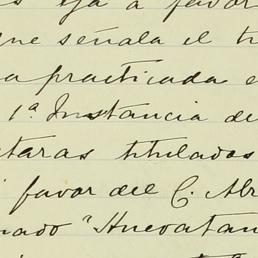 ya a favor
que señala el
practicada
1ª Instancia de
taras titulados
favor del C. Abr
nado "Huevatan